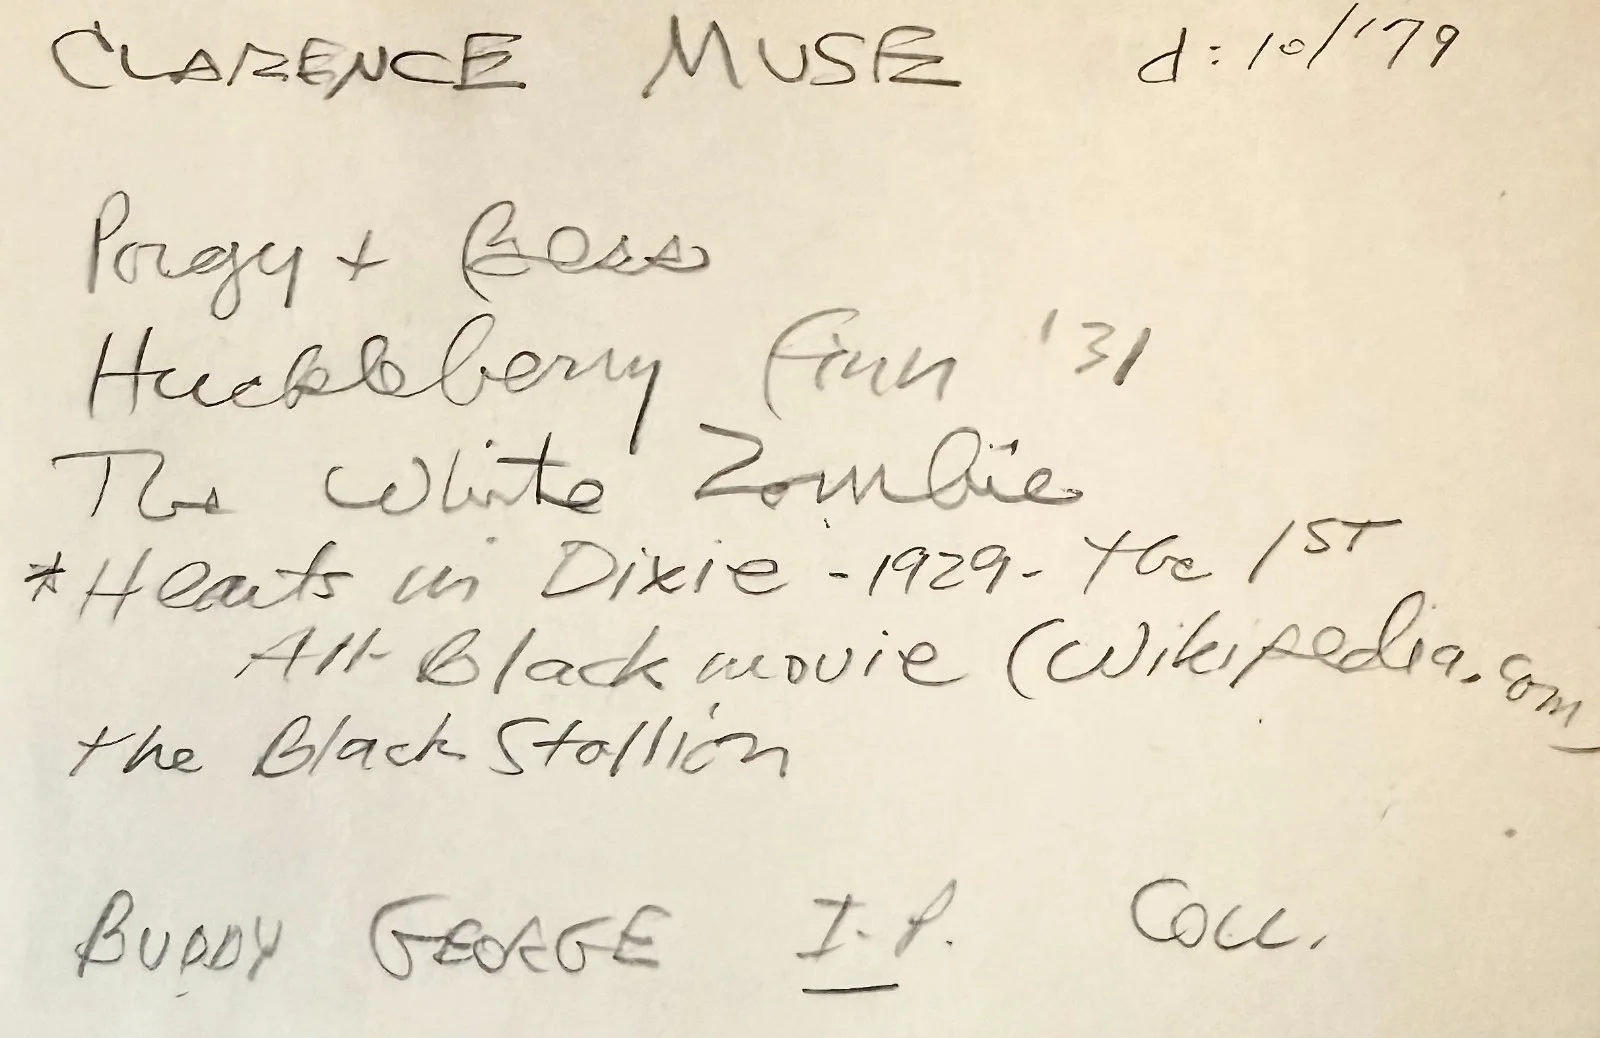 CLARENCE MUSE d: 10/'79
Porgy + Bess
Huckleberry Finn '31
The White Zombie
*Hearts in Dixie - 1929 - the 1ST
All-Black movie (Wikipedia.com)
the Black Stallion
BUDDY GEORGE I.P. COLL.